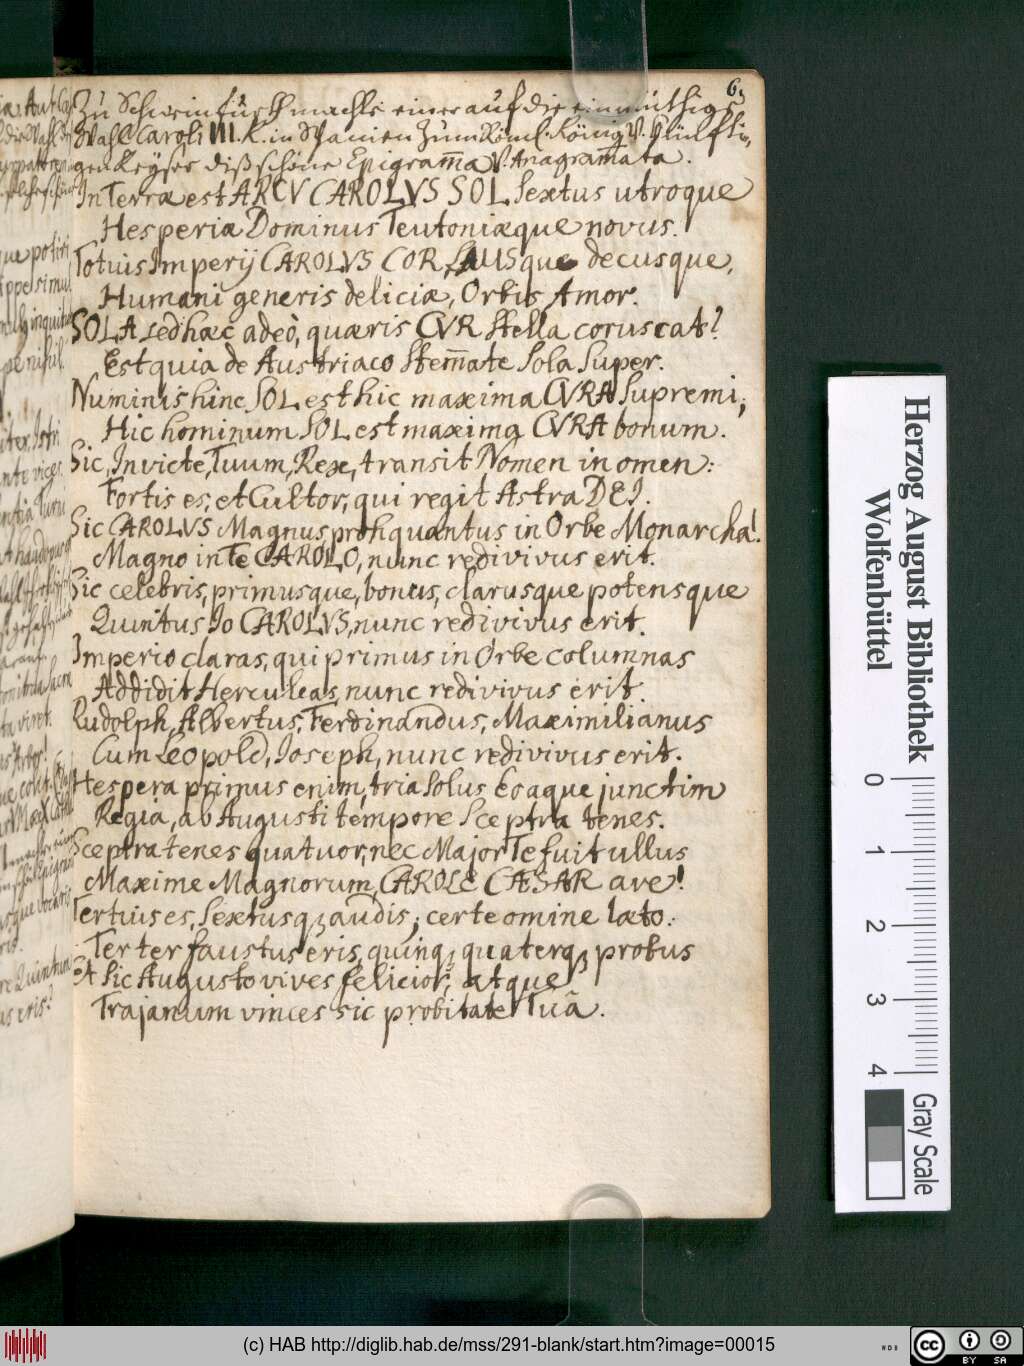 6.
Zu Schweinfürth machte einer auf die einmüthige
Wahl Caroli III. K. in Spanien zum Röml. König V. Künffti-
gen Keyser diß schöne Epigram̄a V. Anagram̄ata.
In Terra est ARCV CAROLVS SOL Sextus utroque
Hesperiæ Dominus Teutoniæque novus.
Totius Imperij CAROLVS COR, LAUSque decusque,
Humani generis deliciæ, Orbis Amor.
SOLA sed hæc adeò, quæris CVR Stella coruscat?
Est quia de Austriaco Stem̄ate Sola Super.
Numinis hinc SOL est hic maxima CVRA Supremi;
Hic hominum SOL est maxima CVRA bonum.
Sic, Invicte, Tuum, Rex, transit Nomen in omen:
Fortis es, et Cultor, qui regit Astra DEI.
Sic CAROLVS Magnus proh quantus in Orbe Monarcha!
Magno in Te CAROLO, nunc redivivus erit.
Sic celebris, primusque, bonus, clarusque potensque
Quintus Io CAROLVS, nunc redivivus erit.
Imperio claras, qui primus in Orbe columnas
Addidit Herculeas, nunc redivivus erit.
Rudolph, Albertus, Ferdinandus, Maximilianus
Cum Leopold, Ioseph, nunc redivivus erit.
Hespera primus enim, tria Solus Eoaque junctim
Regia, ab Augusti tempore Sceptra tenes.
Sceptra tenes quatuor, nec Major Te fuit ullus
Maxime Magnorum, CAROLE CÆSAR ave!
Tertius es, Sextusqꝫ audis; certe omine læto:
Ter ter faustus eris, quinqꝫ quaterqꝫ probus
Et Sic Augusto vives felicior, atque
Trajanum vinces sic probitate Tuâ.
Herzog August Bibliothek
Wolfenbüttel
0 1 2 3 4
Gray Scale
(c) HAB http://diglib.hab.de/mss/291-blank/start.htm?image=00015
WDB
cc BY SA